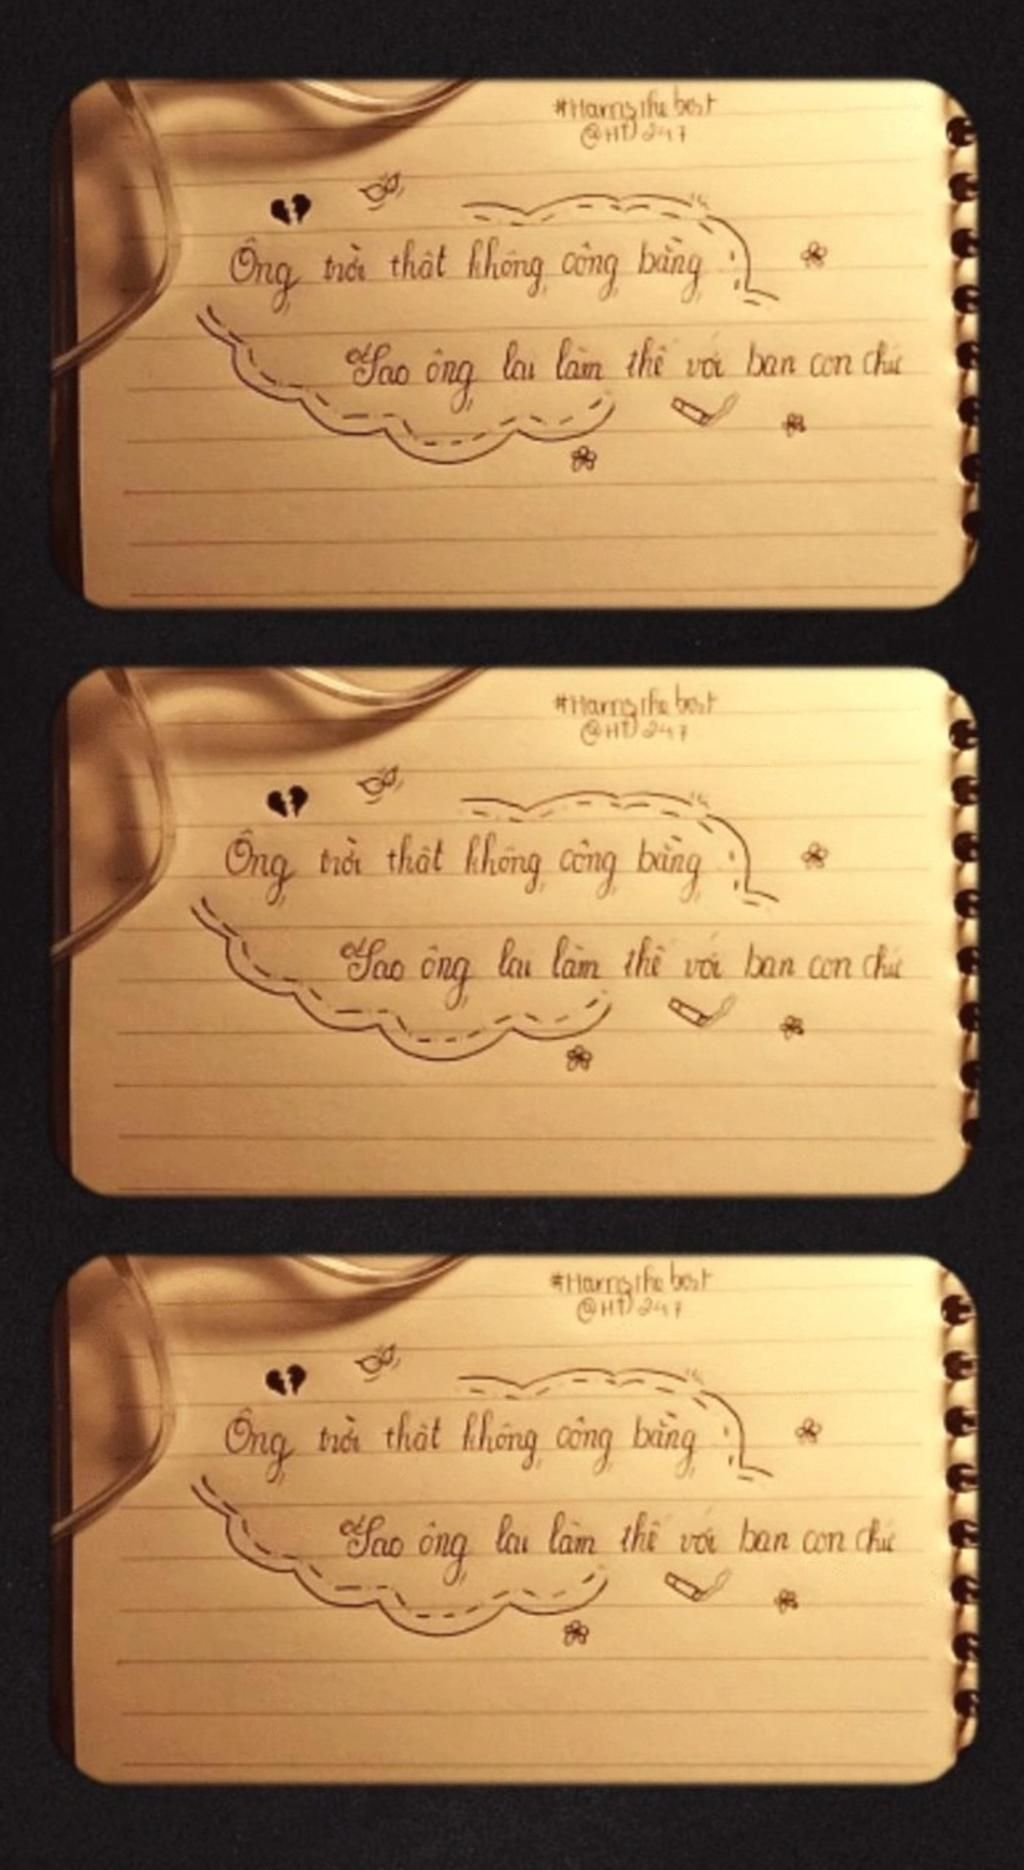 #Harristhebest
@HD 247
Ông trời thật không công bằng
Sao ông lại làm thế với bạn con chứ
#Harristhebest
@HD 247
Ông trời thật không công bằng
Sao ông lại làm thế với bạn con chứ
#Harristhebest
@HD 247
Ông trời thật không công bằng
Sao ông lại làm thế với bạn con chứ